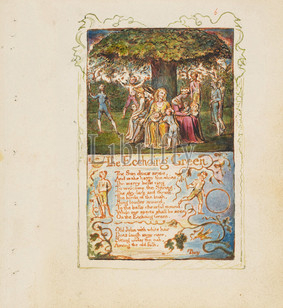 The Ecchoing Green
The Sun does arise,
And make happy the skies.
The merry bells ring
To welcome the Spring.
The sky-lark and thrush,
The birds of the bush,
Sing louder around,
To the bells chearful sound.
While our sports shall be seen
On the Ecchoing Green.
Old John with white hair
Does laugh away care,
Sitting under the oak,
Among the old folk,
They